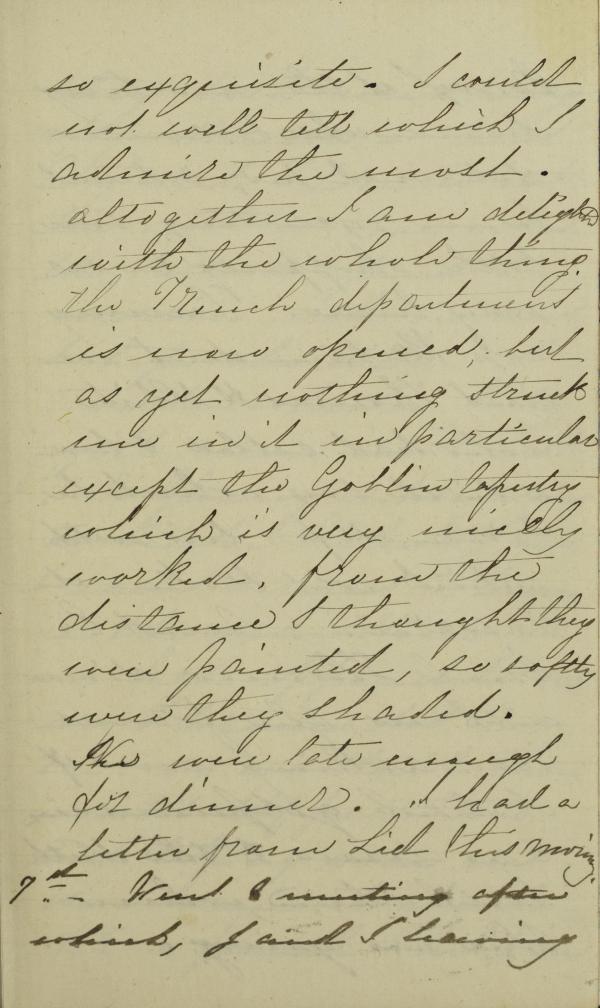 so exquisite. I could
not well tell which I
admire the most.
altogether I am delighted
with the whole thing.
the French department
is now opened, but
as yet nothing struck
me in it in particular
except the Goblin tapestry
which is very nicely
worked, from the
distance I thought they
were painted, so softly
were they shaded.
We were late enough
for dinner. I had a
letter from Lid this morning.
7th- Went to meeting after
which, J and I leaving